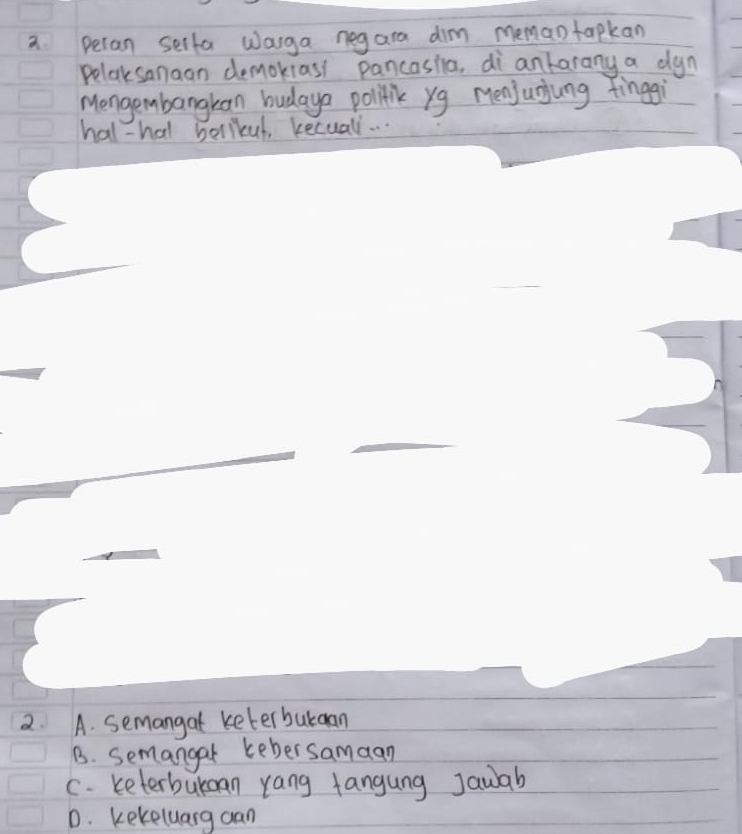 2. peran serta warga negara dlm memantapkan
pelaksanaan demokrasi pancasila, di antaranya dgn
Mengembangkan budaya politik yg menjunjung tinggi
hal-hal berikut, kecuali...
2. A. semangat keterbukaan
B. semangat kebersamaan
C. keterbukaan yang tangung Jawab
D. kekeluargaan